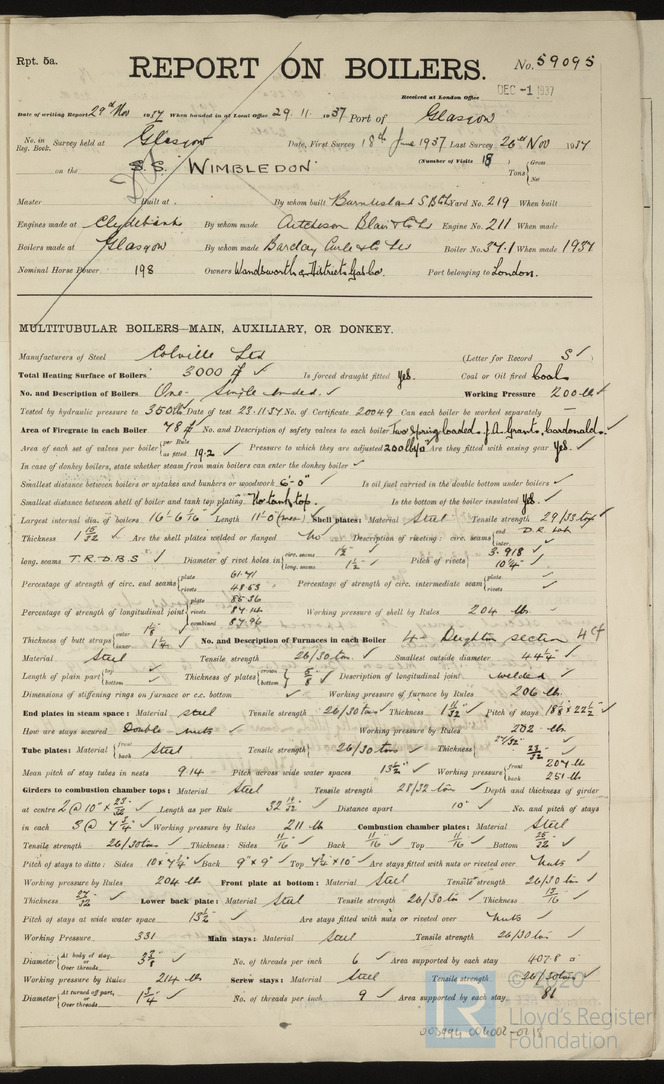 Rpt. 5a.
REPORT ON BOILERS.
No. 59095
Received at London Office DEC -1 1937
Date of writing Report 29th Nov 1937 When handed in at Local Office 29. 11. 1937 Port of Glasgow
No. in Reg. Book. Survey held at Glasgow Date, First Survey 18th June 1937 Last Survey 26th Nov 1937
on the S.S. "WIMBLEDON" (Number of Visits 18) Tons { Gross Net
Master Built at By whom built Burntisland S.B. Co Ld Yard No. 219 When built
Engines made at Clydebank By whom made Aitcheson Blair & Co Ld Engine No. 211 When made
Boilers made at Glasgow By whom made Barclay Curle & Co Ld Boiler No. 37.1 When made 1937
Nominal Horse Power 198 Owners Wandsworth & District Gas Co. Port belonging to London.
MULTITUBULAR BOILERS—MAIN, AUXILIARY, OR DONKEY.
Manufacturers of Steel Colville Ltd (Letter for Record S ✓)
Total Heating Surface of Boilers 3000 ✓ Is forced draught fitted Yes. Coal or Oil fired Coal
No. and Description of Boilers One - Single ended. ✓ Working Pressure 200 lb ✓
Tested by hydraulic pressure to 350 lb Date of test 23.11.37 No. of Certificate 20049 Can each boiler be worked separately —
Area of Firegrate in each Boiler 78 ✓ No. and Description of safety valves to each boiler Two Spring loaded. J.A. Grants, Cardonald. ✓
Area of each set of valves per boiler { per Rule as fitted 19.2 ✓ Pressure to which they are adjusted 200 lb Are they fitted with easing gear Yes. ✓
In case of donkey boilers, state whether steam from main boilers can enter the donkey boiler ✓
Smallest distance between boilers or uptakes and bunkers or woodwork 6'-0" ✓ Is oil fuel carried in the double bottom under boilers ✓
Smallest distance between shell of boiler and tank top plating No tank top. Is the bottom of the boiler insulated Yes. ✓
Largest internal dia. of boilers Length 11'-0" (mean) ✓ Shell plates: Material Steel Tensile strength 29/33 ton ✓
Thickness 1 15/32 ✓ Are the shell plates welded or flanged No Description of riveting: circ. seams { end D.R. Lap inter.
long. seams T.R.D.B.S ✓ Diameter of rivet holes in { circ. seams 1½ ✓ long. seams 1½ ✓ Pitch of rivets { 3.918 ✓ 10¼ ✓
Percentage of strength of circ. end seams { plate 61.71 rivets 48.53 Percentage of strength of circ. intermediate seam { plate rivets
Percentage of strength of longitudinal joint { plate 85.36 rivets 87.14 combined 87.96 Working pressure of shell by Rules 204 lb.
Thickness of butt straps { outer 1⅛ inner 1¼ ✓ No. and Description of Furnaces in each Boiler 4 - Deighton section
Material Steel Tensile strength 26/30 ton ✓ Smallest outside diameter 44¼ ✓
Length of plain part { top bottom ✓ Thickness of plates { crown bottom 5/8 ✓ Description of longitudinal joint welded ✓
Dimensions of stiffening rings on furnace or c.c. bottom ✓ Working pressure of furnace by Rules 206 lb.
End plates in steam space: Material steel Tensile strength 26/30 ton ✓ Thickness 1 11/32 ✓ Pitch of stays 18⅛ x 22½ ✓
How are stays secured Double nuts ✓ Working pressure by Rules 202 lb.
Tube plates: Material { front back Steel Tensile strength { 26/30 ton ✓ Thickness { 27/32 ✓ 23/32 ✓
Mean pitch of stay tubes in nests 9.14 Pitch across wide water spaces 13½ ✓ Working pressure { front 207 lb back 251 lb
Girders to combustion chamber tops: Material Steel Tensile strength 28/32 ton ✓ Depth and thickness of girder
at centre 2 @ 10" x 23/32 ✓ Length as per Rule 32 ✓ Distance apart 10" ✓ No. and pitch of stays
in each 3 @ 7¾" ✓ Working pressure by Rules 211 lb Combustion chamber plates: Material Steel
Tensile strength 26/30 ton ✓ Thickness: Sides 11/16 ✓ Back 11/16 ✓ Top 11/16 ✓ Bottom 25/32 ✓
Pitch of stays to ditto: Sides 10 x 7¾ ✓ Back 9" x 9" ✓ Top 7¾ x 10" ✓ Are stays fitted with nuts or riveted over Nuts ✓
Working pressure by Rules 204 lb ✓ Front plate at bottom: Material Steel Tensile strength 26/30 ton ✓
Thickness 27/32 ✓ Lower back plate: Material Steel Tensile strength 26/30 ton ✓ Thickness 13/16 ✓
Pitch of stays at wide water space 13½ ✓ Are stays fitted with nuts or riveted over Nuts ✓
Working Pressure 331 Main stays: Material Steel Tensile strength 26/30 ton ✓
Diameter { At body of stay, or Over threads No. of threads per inch 6 ✓ Area supported by each stay 407.8
Working pressure by Rules 214 lb ✓ Screw stays: Material Steel Tensile strength 26/30 ton ✓
Diameter { At turned off part, or Over threads 1¾ ✓ No. of threads per inch 9 ✓ Area supported by each stay 81
© 2020
Lloyd's Register
Foundation
LR